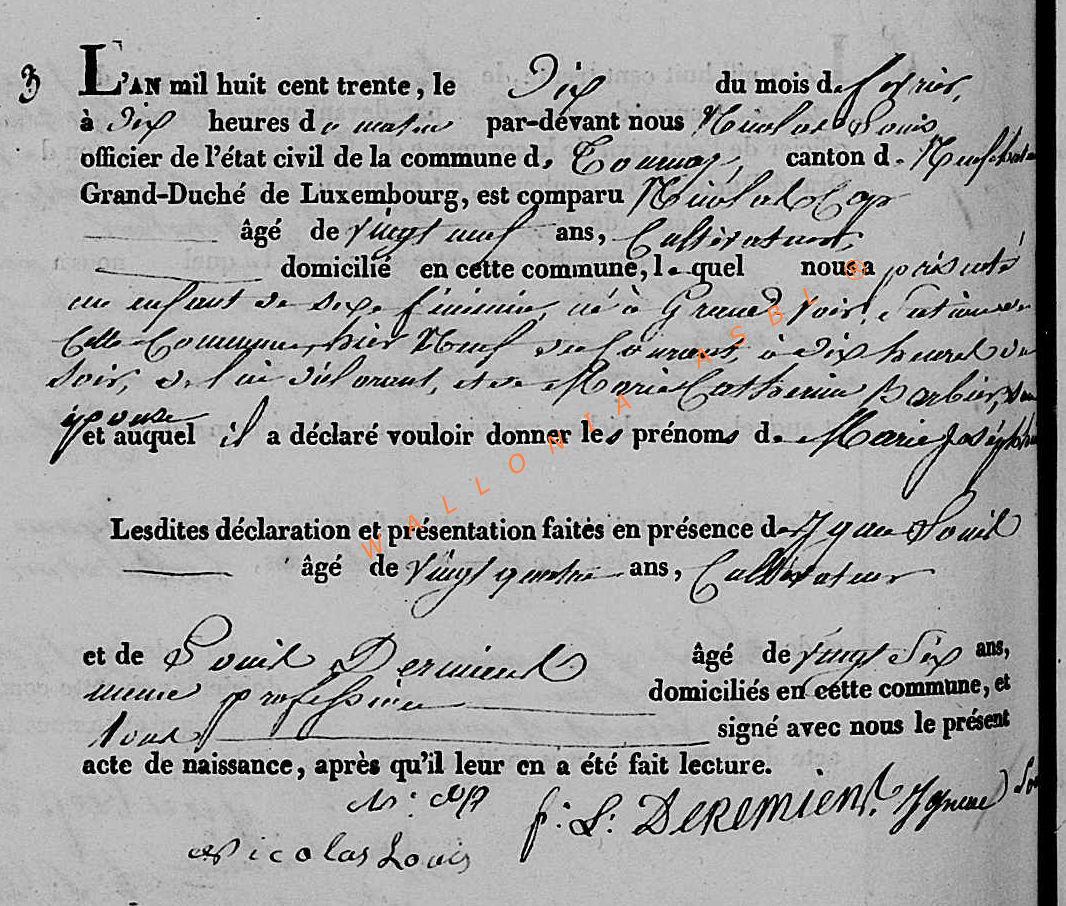 3 L'AN mil huit cent trente, le Dix du mois de fevrier,
à Dix heures du matin par-devant nous Nicolas Louis
officier de l'état civil de la commune de Tournay, canton de Neufchateau
Grand-Duché de Luxembourg, est comparu Nicolas Cop
âgé de vingt neuf ans, Cultivateur,
domicilié en cette commune, lequel nous a présenté
un enfant de sexe féminin, né à Grand voir, Section de
cette Commune, hier Neuf du Courant, à dix heures du
soir, de lui déclarant, et de Marie Catherine Barbier, son
épouse
et auquel il a déclaré vouloir donner les prénoms de Marie Joséphine
Lesdites déclaration et présentation faites en présence de Ignace Louis
âgé de vingt quatre ans, Cultivateur
et de Louis Dermient âgé de vingt Six ans,
meme profession domiciliés en cette commune, et
tous signé avec nous le présent
acte de naissance, après qu'il leur en a été fait lecture.
N: Cop f: L: DEREMIENT.
Nicolas Louis
WALLONIA ASBL ©